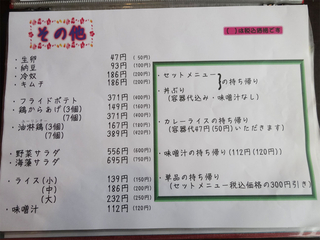 その他
( )は税込価格です
・生卵 47円 (50円)
・納豆 93円 (100円)
・冷奴 186円 (200円)
・キムチ 186円 (200円)
・フライドポテト 371円 (400円)
・鶏からあげ(3個) 149円 (160円)
(7個) 371円 (400円)
・油淋鶏(3個) 167円 (180円)
(7個) 389円 (420円)
・野菜サラダ 556円 (600円)
・海藻サラダ 695円 (750円)
・ライス(小) 139円 (150円)
(中) 186円 (200円)
(大) 232円 (250円)
・味噌汁 112円 (120円)
・セットメニューの持ち帰り
・丼ぶり
(容器代込み・味噌汁なし)
・カレーライスの持ち帰り
(容器代47円(50円)いただきます)
・味噌汁の持ち帰り(112円(120円))
・単品の持ち帰り
(セットメニュー税込価格の300円引き)